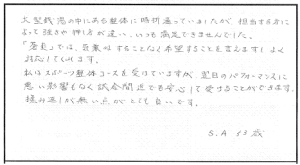 大型銭湯の中にある整体に時折通っていましたが、担当する方に
よって強さや押し方が違い、いつも満足できませんでした。
では、気兼ねすることなく希望することを言えますしよく
対応してくれます。
私はスポーツ整体コースを受けていますが、翌日のパフォーマンスに
悪い影響もなく試合間近でも安心して受けることができます。
揉み返しが無い点がとても良いです。
S.A 33歳